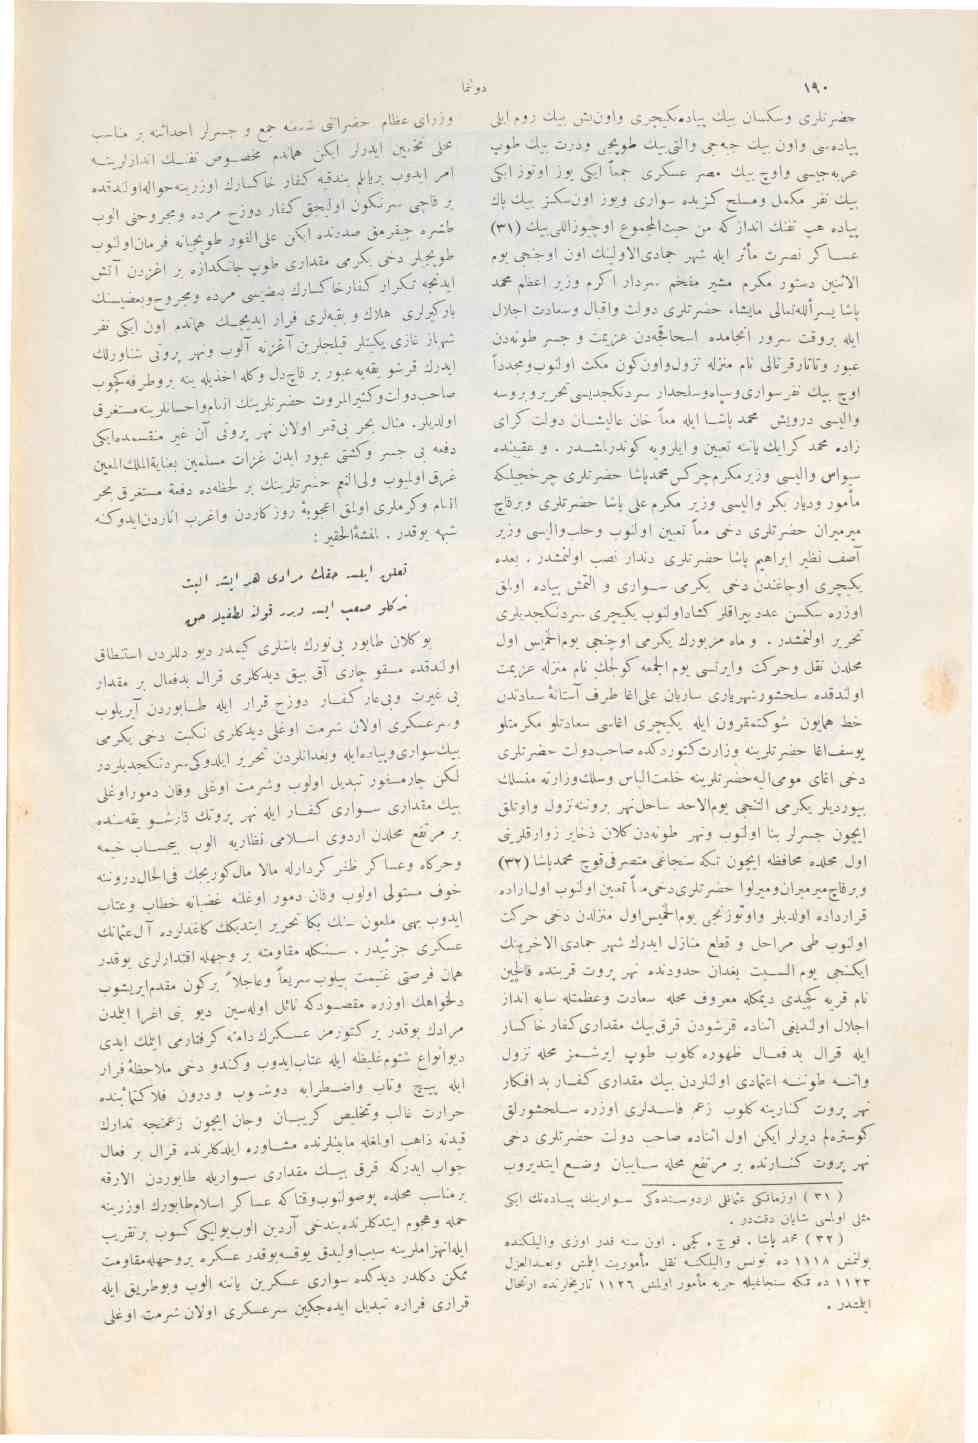 ١٩٠
دوننما
حضرتلری وسکسان بیك پیاده یکیچری واون بش بیك روم ایلی
پیاده سی واون بیك جبه جی والتی بیك طوپجی ودرت بیك طوپ
عربه جیسی واوچ بیك مصر عسکری جمعاً ایکی یوز اوتوز ایکی
بیك نفر مکمل ومسلح کزیده سواری ویوز اون سکز بیك پاك
پیاده هپ تفنك انداز که من حیث المجموع اوچیوزاللی بیك (٣١)
عساکر نصرت مآثر ایله شهر جمادی الاولینك اون اوچنجی یوم
الاثنین دستور مکرم مشیر مفخم سردار اکرم وزیر اعظم محمد
پاشا یسرالله تعالی مایشاء حضرتلری دولت واقبال وسعادت اجلال
ایله بروقت سرور انجامده اسحاقجه دن عزیمت و جسر طونه دن
عبور وتاتار قرتالی نام منزله نزول واون کون مکث اولنوب ومجدداً
اوچ بیك نفر سواری وسپاه وسلحدار سردنکجدیسی تحریر وبروسه
والیسی درویش محمد پاشا ایله معاً خان عالیشان دولت کرای
زاده محمد کرایك یاننه تعیین و ایلرویه کوندرلمشدر . و عقبنده
سیواس والیسی وزیر مکرم چرکس محمد پاشا حضرتلری چرخجیلکه
مأمور ودیار بکر والیسی وزیر مکرم علی پاشا حضرتلری وبرقاچ
میرمیران حضرتلری دخی معاً تعیین اولنوب وحلب والیسی وزیر
آصف نظیر ابراهیم پاشا حضرتلری دندار نصب اولنمشدر . بعده
یکیچری اوجاغندن دخی یکرمی سواری و التمش پیاده اولمق
اوزره سکسن عدد بیراقلر کشاد اولنوب یکیچری سردنکجدیلری
تحریر اولنمشدر . و ماه مزبورك یکرمی اوچنجی یوم الخمیس اول
محلدن نقل وحرکت وایرتسی یوم الجمعه کولجك نام منزله عزیمت
اولندقده سلحشور شهریاری ساربان علی اغا طرف آستانهٔ سعادتدن
خط همایون شوکتمقرون ایله یکیچری اغاسی سعادتلو مکرمتلو
یوسف اغا حضرتلرینه وزارت کتوردکده صاحب دولت حضرتلری
دخی اغای مومی الیه حضرتلرینه خلعت الباس وسلك وزارته منسلك
بیوردیلر یکرمی التنجی یوم الاحد ساحل نهر پروتنه نزول واوتلق
ایچون جسرلر بنا اولنوب ونهر طونه دن کلان ذخایر زوارقلرینی
اول محلده محافظه ایچون تکه سنجاغی متصرفی قوچ محمد پاشا (٣٢)
وبرقاچ میرمیران ومیرلوا حضرتلری دخی معاً تعیین اولنوب اول اراده
قرارداده اولدیلر واوتوزنجی یوم الخمیس اول منزلدن دخی حرکت
اولنوب طی مراحل و قطع منازل ایدرك شهر جمادی الآخرینك
ایکنجی یوم السبت بغدان حدودنده نهر پروت قربنده فالجین
نام قریه کچیدی دیمکله معروف محله سعادت وعظمتله سایه انداز
اجلال اولندیغی اثناده قرشودن قرق بیك مقداری کفار خاکسار
ایله قرال بد فعال ظهوره کلوب طوپ ایرشمز محله نزول
واتنه طوتنه اعتمادی اولنلردن بیك مقداری کفار بد افکار
نهر پروت کنارینه کلوب زعم فاسدلری اوزره سلحشورلق
کوسترەلم دیرلر ایکن اول اثناده صاحب دولت حضرتلری دخی
نهر پروت کنارنده بر مرتفع محله سایبان وضع ایتدیروب
( ٣١ ) اوزمانکی عثمانلی اردوسنده کی سوارینك پیاده نك ایکی
مثلی اولمسی شایان دقتدر .
( ٣٢ ) محمد پاشا . قوچ . کبی . اون سنه قدر اوزی والیلکنده
بولنمش ١١١٨ ده تونس والیلکنه نقل مأموریت ایتمش وبعدالعزل
١١٢٣ ده تکه سنجاغیله حربه مأمور اولمش ١١٢٦ تاریخلرنده ارتحال
ایتمشدر .
وزرای عظام حضراتی جمع و جسرلر احداثنه بر مناسب
محلی تخمین ایدرلر ایکن هماندم مخصوص تفنك اندازلرینه
امر ایدوب بریالیم بندقیه کفار خاکسارك اوزرینه حواله اولندقده
بر قاچی سرنکون اولیجق کفار دوزخ مرده ومجروحنی الوب
طشره چیقرمق صددنده ایکن علی الفور طوپجیانه فرمان اولنوب
طوپجیلر دخی یکرمی مقداری طوپ جانکدازه بر اغزدن آتش
ایدنجه تکرار کفار خاکسارك بعضیسی مرده ومجروح وبعضیسنك
بارکیرلری هلاك و بقیه لری فرار ایدیجك هماندم اون ایکی نفر
شهباز غازی یکیتلر قیلجلرین آغزنه آلوب ونهر پروتی شناورلك
ایدرك قرشو یقه یه عبور بر قاچ دل وکله اخذیله ینه بروطرفه کچوب
صاحب دولت وکثیر المروت حضرتلرینك انعام واحسانلرینه مستغرق
اولدیلر . مثال بحر بی قعر اولان نهر پروتی آن غیر منقسمده ایکی
دفعه بی جسر وکشتی عبور ایدن غزات مسلمین بعنایة الملك المعین
غرق اولمیوب ولی النعم حضرتلرینك بر لحظه ده دفعة مستغرق بحر
انعام وکرملری اولمق اعجوبهٔ روزکاردن واغرب اناردن ایدوکنه
شبهه یوقدر . لمنشئه الحقیر :
تعلق ایلسه حقك مرادی هر ایشه البت
نه کلو صعب ایسه ویرر قولنه لطفیله
بو کلان طابور بی نورك باشلری کیمدر دیو دللردن استنطاق
اولندقده مسقو چاری آق بیق دیدکلری قرال بدفعال بر مقدار
بی غیرت وبی عار کفار دوزخ قرار ایله طابوردن آیریلوب
وسرعسکری اولان شرمت اوغلی دیدکلری نکبت دخی یکرمی
بیك سواری وپیاده ایله وبغدانلردن تحریر ایلدوکی سردنکجدیلردر
لکن چار مسفور تبدیل اولوب وشرمت اوغلی وفان دمور اوغلی
بیك مقداری سواری کفار ایله نهر پروتك قارشو یقه سنده
بر مرتفع محلدن اردوی اسلامی نظاره الوب بیحساب خیمه
وخرکاه وعساکر ظفر کردارله مالا مال کوریجك فی الحال دروننه
خوف مستولی اولوب وفان دمور اوغلنه غضبانه خطاب وعتاب
ایدوب بهی ملعون سنك بکا تحریر ایتدیکك کاغدلرده آل عثمانك
عسکری جزئیدر . سنکله مقاومته بر وجهله اقتدارلری یوقدر
همان فرصتی غنیمت بیلوب سریعاً وعاجلاً برکون مقدم ایریشوب
دلخواهك اوزره مقصودکه نائل اوله سین دیو بنی اغرا ایتمدن
مرادك بوقدر بر کتورمز عسکرك دامنه کرفتارمی ایتمك ایدی
دیو انواع شتوم غلیظه ایله عتاب ایدوب وکندو دخی ملاحظهٔ فرار
ایله پیچ وتاب واضطرابه دوشوب و درون فلاکتمائبنده
حرارت غالب وتخلیص کریبان وجان ایچون زعمنجه تدارك
قیدنه ذاهب اولمغله مابینلرنده مشاوره ایلدکلرنده قرال بر فعال
جواب ایدرکه قرق بیك مقداری سواریله طابوردن الارقه
بر مناسب محلده بوصولنوب وقتا که عساکر اسلام طابورك اوزرینه
حمله وهجوم ایتدکلرنده بندخی آردین الوب یولیکی کسوب بر تقریب
ایله انهزاملرینه سبب اولیدق یوقسه بوقدر عسکره بروجهله مقاومت
ممکن دکلدر دیدکده سواری عسکرین یاننه الوب وبوطریق ایله
قراری فراره تبدیل ایده جکین سرعسکری اولان شرمت اوغلی